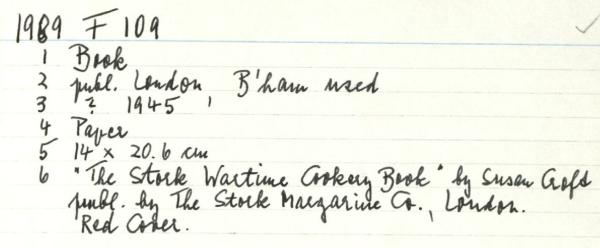 1989 F 109
1 Book
2 publ. London, B'ham used
3 ? 1945
4 Paper
5 14 x 20.6 cm
6 "The Stork Wartime Cookery Book" by Susan Croft
publ. by The Stork Margarine Co., London.
Red Cover.